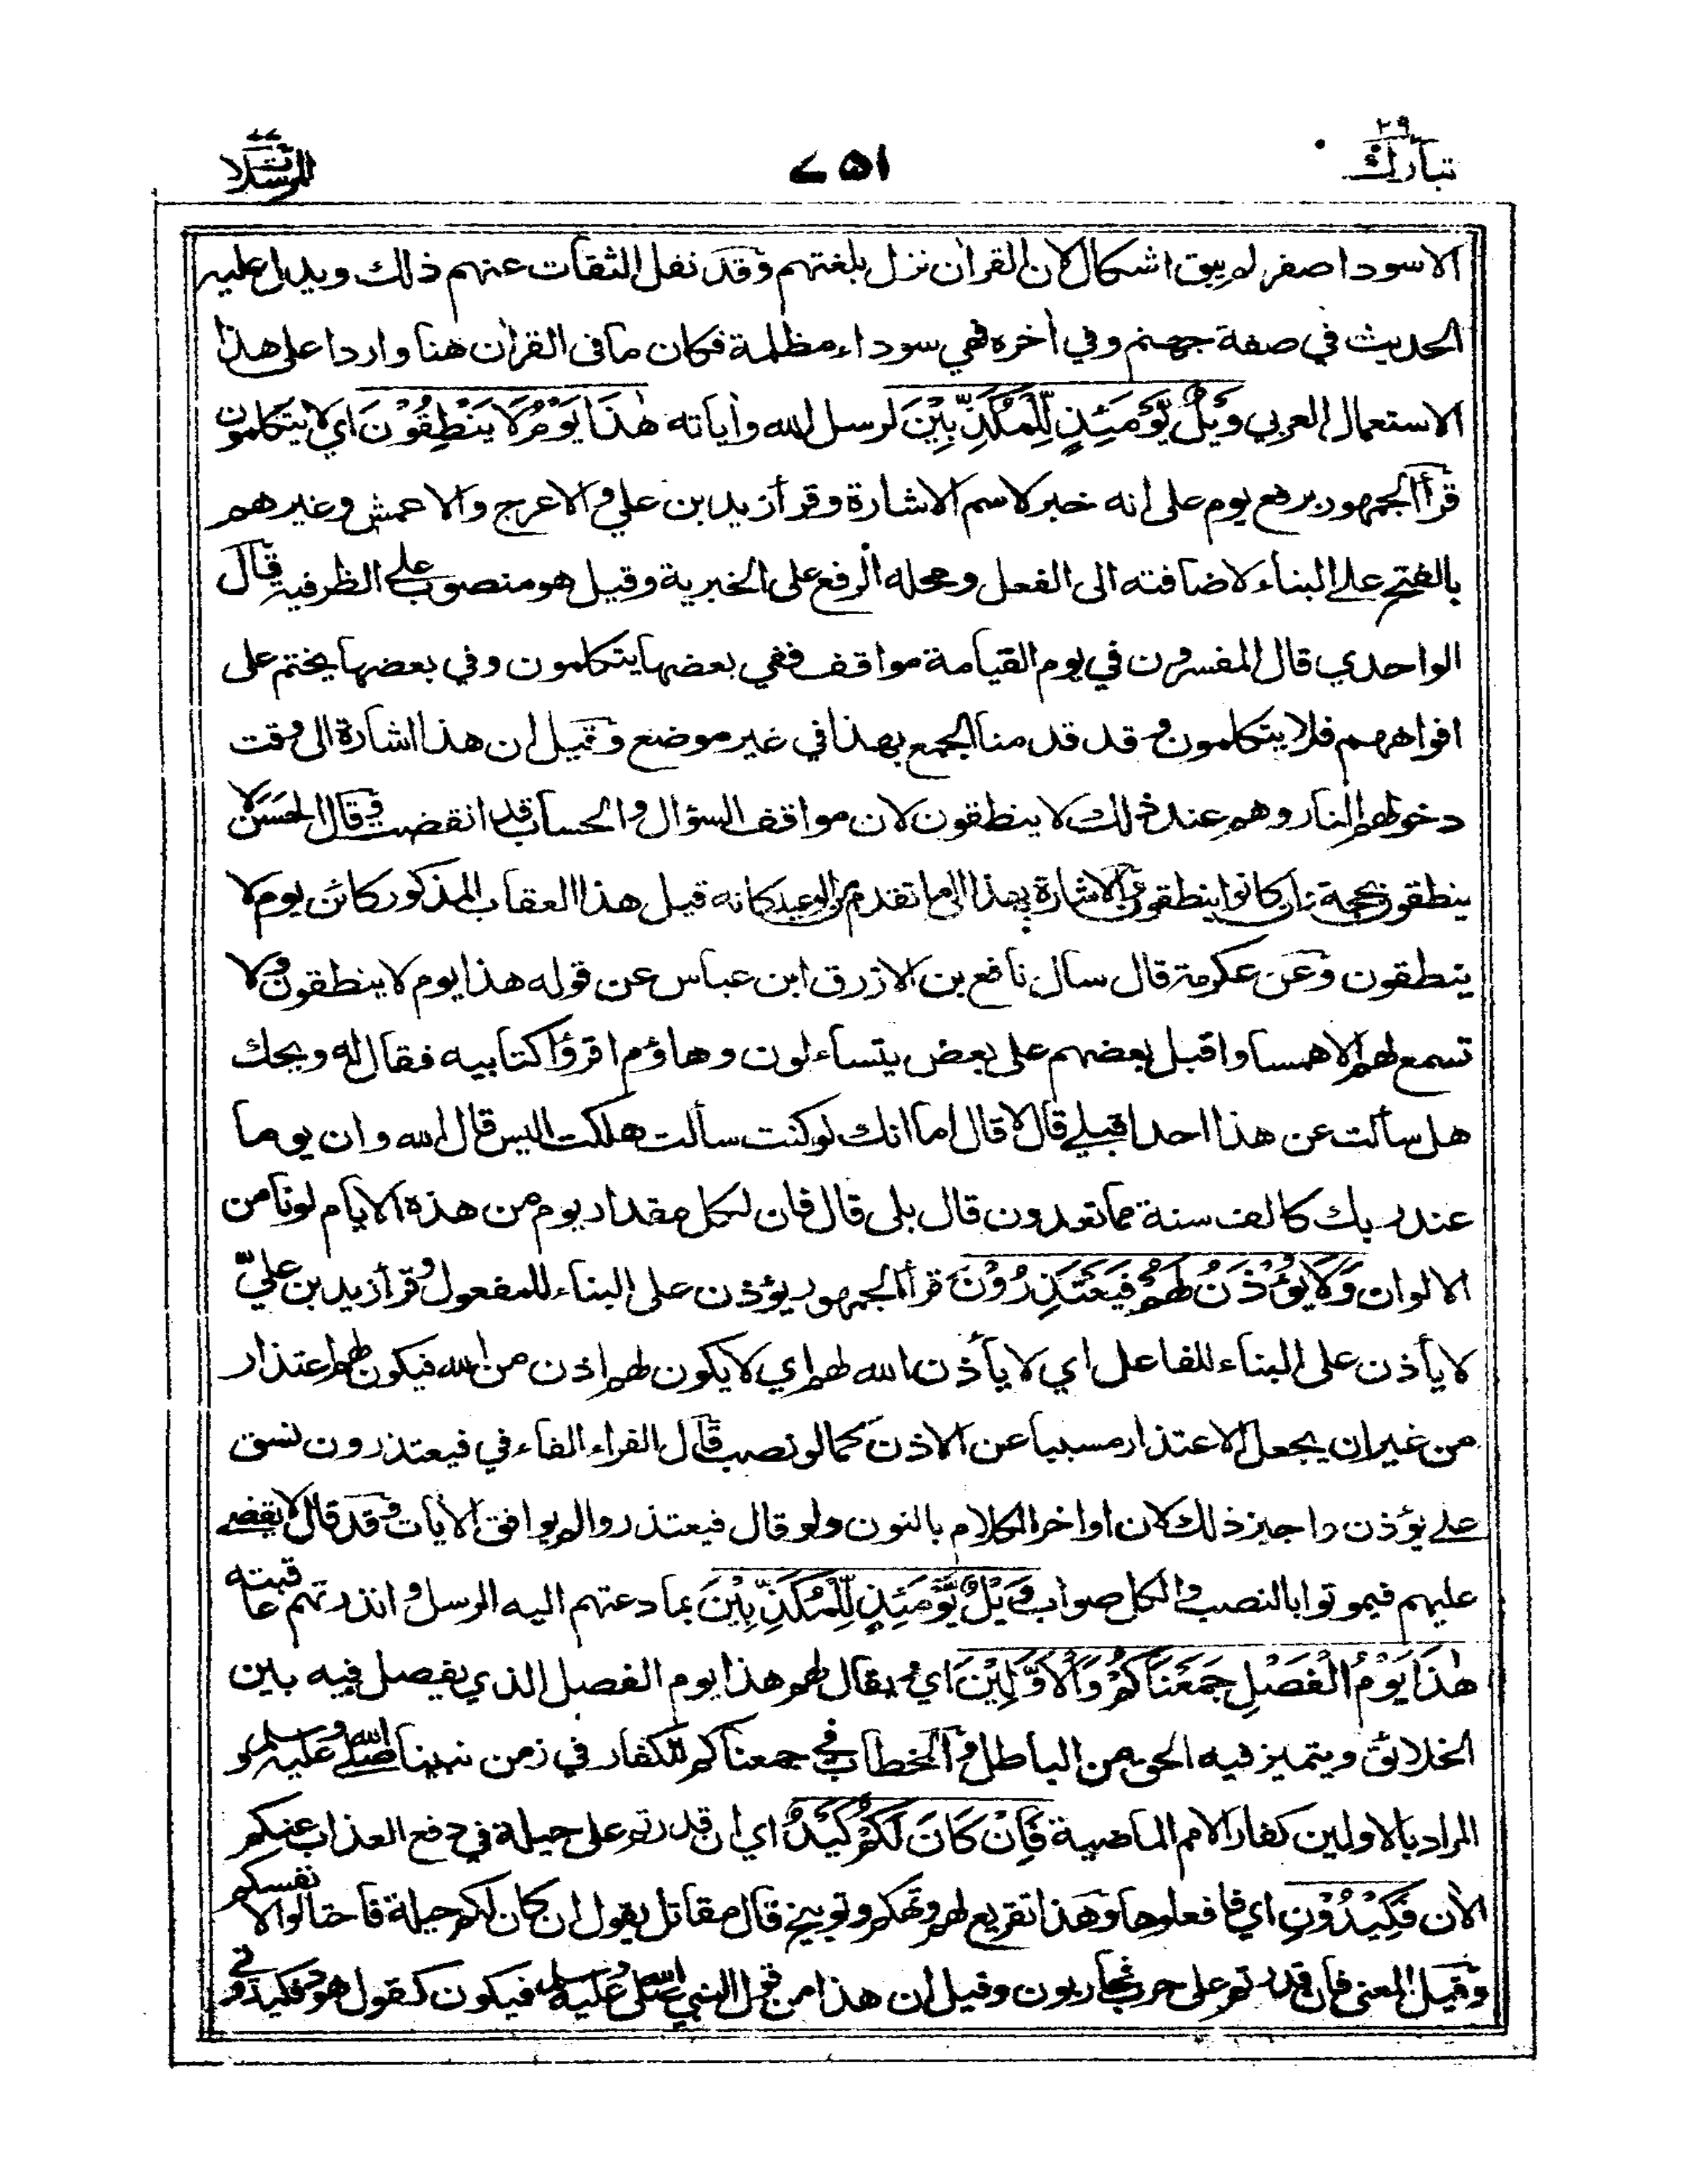 تبارك ٢٩
٧٥١
المرسلات ٧٧
الاسود اصفر لم يبق اشكال لان القرآن نزل بلغتهم وقد نقل الثقات عنهم ذلك ويدل عليه
الحديث في صفة جهنم وفي اخره فهي سوداء مظلمة فكان ما فى القرآن هنا واردا على هذا
الاستعمال العربي وَيْلٌ يَّوْمَئِذٍ لِّلْمُكَذِّبِيْنَ لرسل الله وأياته هٰذَا يَوْمُ لَا يَنْطِقُوْنَ اي لا يتكلمون
قرأ الجمهور برفع يوم على انه خبر لاسم الاشارة وقرأ زيد بن علي والاعرج والاعمش وغيرهم
بالفتح على البناء لاضافته الى الفعل ومحله الرفع على الخبرية وقيل هو منصوب على الظرفية قال
الواحدي قال المفسرون في يوم القيامة مواقف ففي بعضها يتكلمون وفي بعضها يختم على
افواههم فلا يتكلمون وقد قدمنا الجمع بهذا في غير موضع وقيل ان هذا اشارة الى وقت
دخولهم النار وهم عند ذلك لا ينطقون لان مواقف السؤال والحساب قد انقضت وقال الحسن لا
ينطقون بحجة وان كانوا ينطقون والاشارة بهذا الى ما تقدم من الوعيد كانه قيل هذا العقاب المذكور كائن يوم لا
ينطقون وعن عكرمة قال سال نافع بن الازرق ابن عباس عن قوله هذا يوم لا ينطقون ولا
تسمع لهم الا همسا واقبل بعضهم على بعض يتساءلون وهاؤم اقرؤا كتابيه فقال له ويحك
هل سألت عن هذا احدا قبلي قال لا قال اما انك لو كنت سألت هلكت اليس قال الله وان يوما
عند ربك كالف سنة مما تعدون قال بلى قال فان لكل مقدار يوم من هذه الايام لونا من
الالوان وَلَا يُؤْذَنُ لَهُمْ فَيَعْتَذِرُوْنَ قرأ الجمهور يؤذن على البناء للمفعول وقرأ زيد بن عليّ
لا يأذن على البناء للفاعل اي لا يأذن الله لهم اي لا يكون لهم اذن من الله فيكون لهم اعتذار
من غير ان يجعل الاعتذار مسببا عن الاذن كما لو نصب قال الفراء الفاء في فيعتذرون نسق
على يؤذن واجيز ذلك لان اواخر الكلام بالنون ولو قال فيعتذروا لم يوافق الأيات وقد قال لا يقضى
عليهم فيموتوا بالنصب والكل صواب وَيْلٌ يَّوْمَئِذٍ لِّلْمُكَذِّبِيْنَ بما دعتهم اليه الرسل وانذرتهم عاقبته
هٰذَا يَوْمُ الْفَصْلِ جَمَعْنَاكُمْ وَالْاَوَّلِيْنَ اي ويقال لهم هذا يوم الفصل الذي يفصل فيه بين
الخلائق ويتميز فيه الحق من الباطل والخطاب في جمعناكم للكفار في زمن نبينا صلى الله عليه وسلم و
المراد بالاولين كفار الامم الماضية فَاِنْ كَانَ لَكُمْ كَيْدٌ اي ان قدرتم على حيلة في دفع العذاب عنكم
الأن فَكِيْدُوْنِ اي فافعلوها وهذا تقريع لهم وتهكم وتوبيخ قال مقاتل يقول ان كان لكم حيلة فاحتالوا لانفسكم
وقيل المعنى فان قدرتم على حرب فحاربون وقيل ان هذا من قول النبي صلى الله عليه وسلم فيكون كقول هود فكيدوني